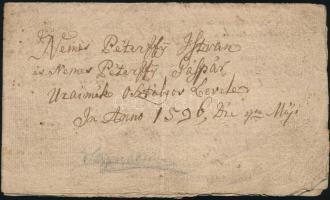 Nemes Péterffÿ Istvan
is Nemes Péterffÿ Gáspár
Uraimék Osztályos Levele
In Anno 1596, Die 9na Maji